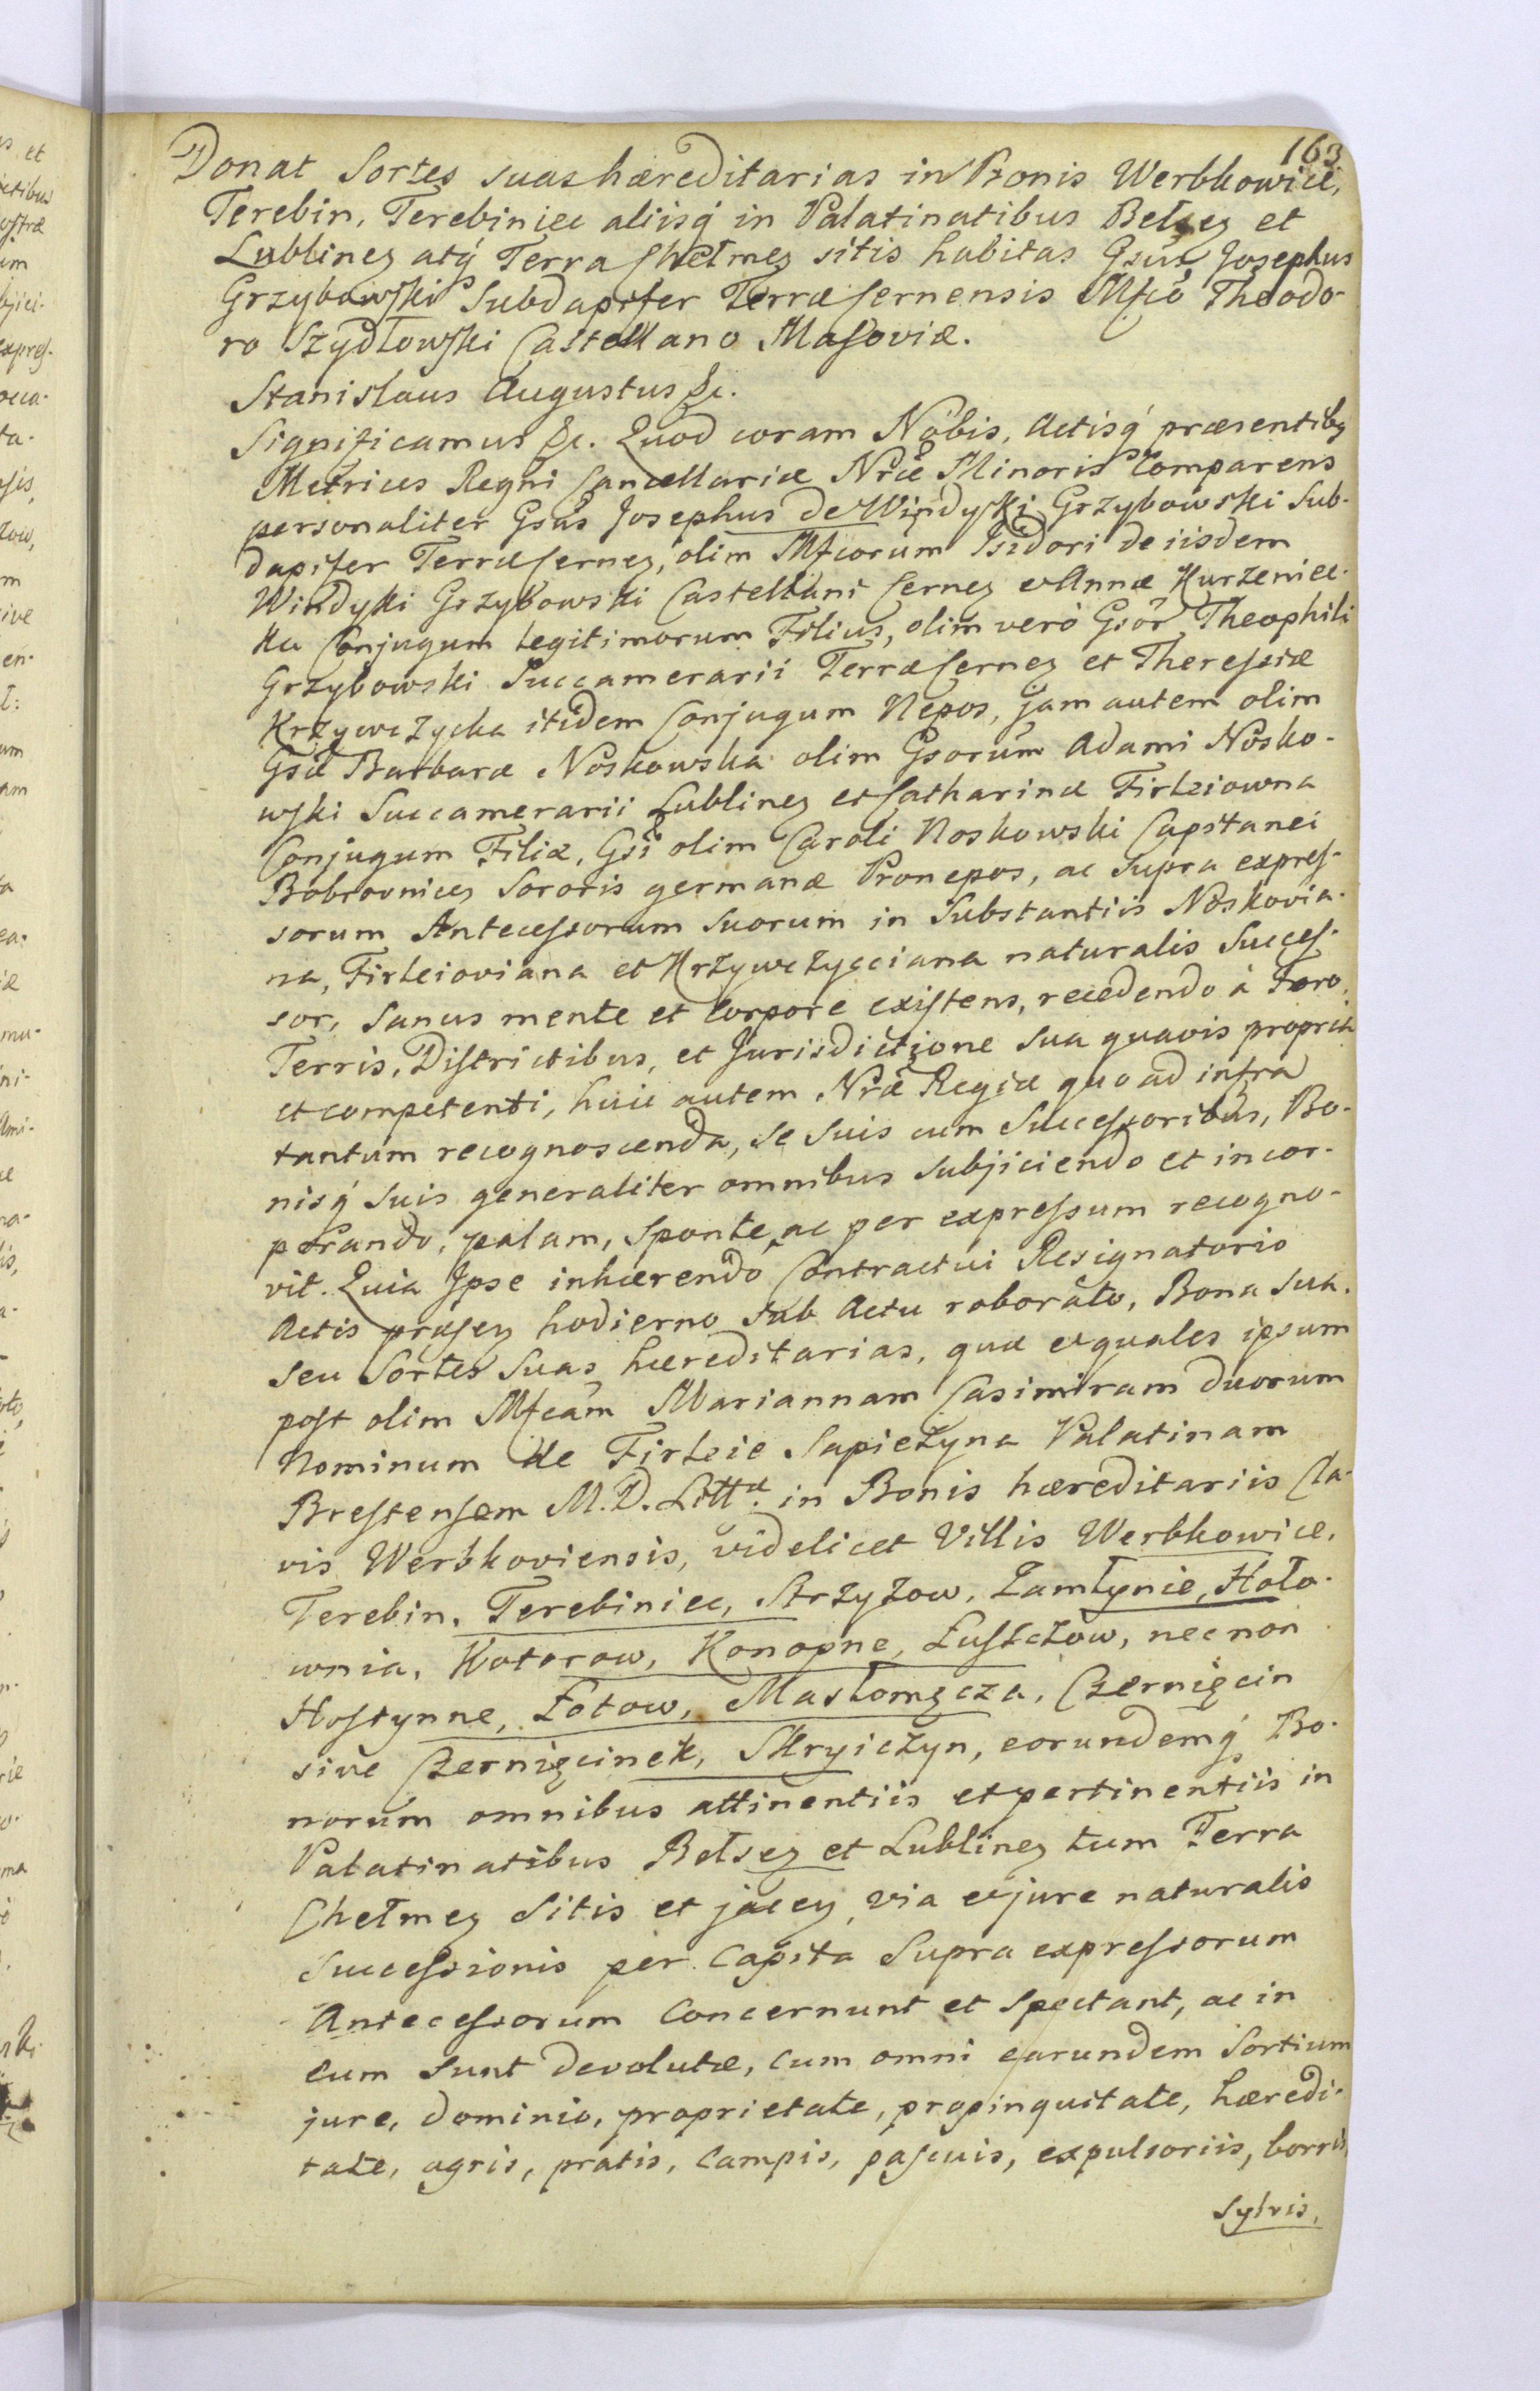 163.
Donat Sortes suas hæreditarias in Bonis Werbkowice,
Terebin, Terebiniec aliisq́ in Palatinatibus Bełzeȝ et
Lublineȝ atq́ Terra Chełmeȝ sitis habitas Gsus Josephus
Grzybowski Subdapifer Terræ Cernensis Mfco Theodo-
ro Szydłowski Castellano Masoviæ.
Stanislaus Augustus &c.
Significamus &c. Quod coram Nobis, Actisq́ præsentibȝ
Metrices Regni Cancellariæ Nræ Minoris Comparens
personaliter Gsus Josephus de Windyki Grzybowski Sub-
dapifer Terræ Cerneȝ, olim Mfcorum Isidori de iisdem
Windyki Grzybowski Castellani Cerneȝ et Annæ Kurzeniec-
ka Conjugum legitimorum Filius, olim verò Gsor Theophili
Grzybowski Succamerarii Terræ Cerneȝ et Theressiæ
Krzywczycka itidem Conjugum Nepos, jam autem olim
Gsæ Barbaræ Noskowska olim Gsorum Adami Nosko-
wski Succamerarii Lublineȝ et Catharinæ Firleiowna
Conjugum Filiæ, Gsi olim Caroli Noskowski Capitanei
Bobrovniceȝ Sororis germanæ Pronepos, ac supra expres-
sorum Antecessorum suorum in Substantiis Noskovia-
na, Firleioviana et Krzywczycciana naturalis Succes-
sor, Sanus mente et Corpore existens, recedendo à Foro,
Terris, Districtibus, et Jurisdictione sua quavis propria
et competenti, huic autem Nræ Regiæ quoad infra
tantum recognoscenda, se suis cum Successoribus, Bo-
nisq́ suis generaliter omnibus subjiciendo et incor-
porando, palam, sponte, ac per expressum recogno-
vit. Quia Ipse inhærendo Contractui Resignatorio
Actis præseȝ hodierno sub Actu roborato, Bona sua
seu Sortes suas hæreditarias, quæ et quales ipsum
post olim Mfcam Mariannam Casimiram duorum
Nominum de Firleie Sapieżyna Palatinam
Brestensem M. D. Littæ. in Bonis hæreditariis Cla-
vis Werbkoviensis, videlicet Villis Werbkowice,
Terebin, Terebiniec, Strzyżow, Zamłynie, Hoło-
wnia, Kotorow, Konopne, Łuszczow, necnon
Hostynne, Łotow, Masłomęcza, Czernięcin
sive Czernięcinek, Mryiczyn, eorundemq́ Bo-
norum omnibus attinentiis et pertinentiis in
Palatinatibus Bełseȝ et Lublineȝ tum Terra
Chełmeȝ Sitis et jaceȝ, via et jure naturalis
Successionis per Capita Supra expressorum
Antecessorum Concernunt et Spectant, ac in
eum sunt devolutæ, cum omni earundem Sortium
jure, dominio, proprietate, propinquitate, hæredi-
tate, agris, pratis, Campis, pascuis, expulsoriis, borris,
Sylvis,